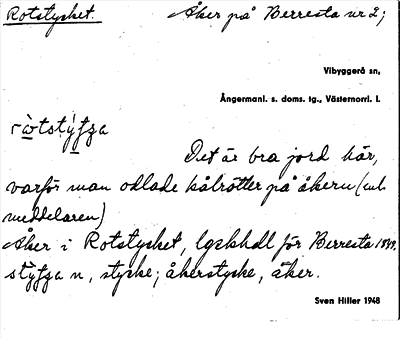 Rotstycket. Åker på Berresta nr 2;
Vibyggerå sn,
Ångermanl. s. doms. tg., Västernorrl. l.
Det är bra jord här,
varför man odlade kålrötter på åkern (enl.
meddelaren)
Åker i Rotstycket, lgskhdl för Berresta
n, stycke; åkerstycke, åker.
Sven Hiller 1948